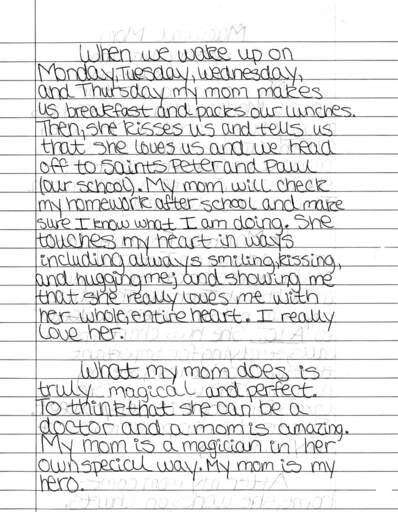 When we wake up on
Monday, Tuesday, Wednesday,
and Thursday my mom makes
us breakfast and packs our lunches.
Then, she kisses us and tells us
that she loves us and we head
off to Saints Peter and Paul
(our school). My mom will check
my homework after school and make
sure I know what I am doing. She
touches my heart in ways
including always smiling, kissing,
and hugging me; and showing me
that she really loves me with
her whole, entire heart. I really
love her.
What my mom does is
truly magical and perfect.
To think that she can be a
doctor and a mom is amazing.
My mom is a magician in her
own special way. My mom is my
hero.